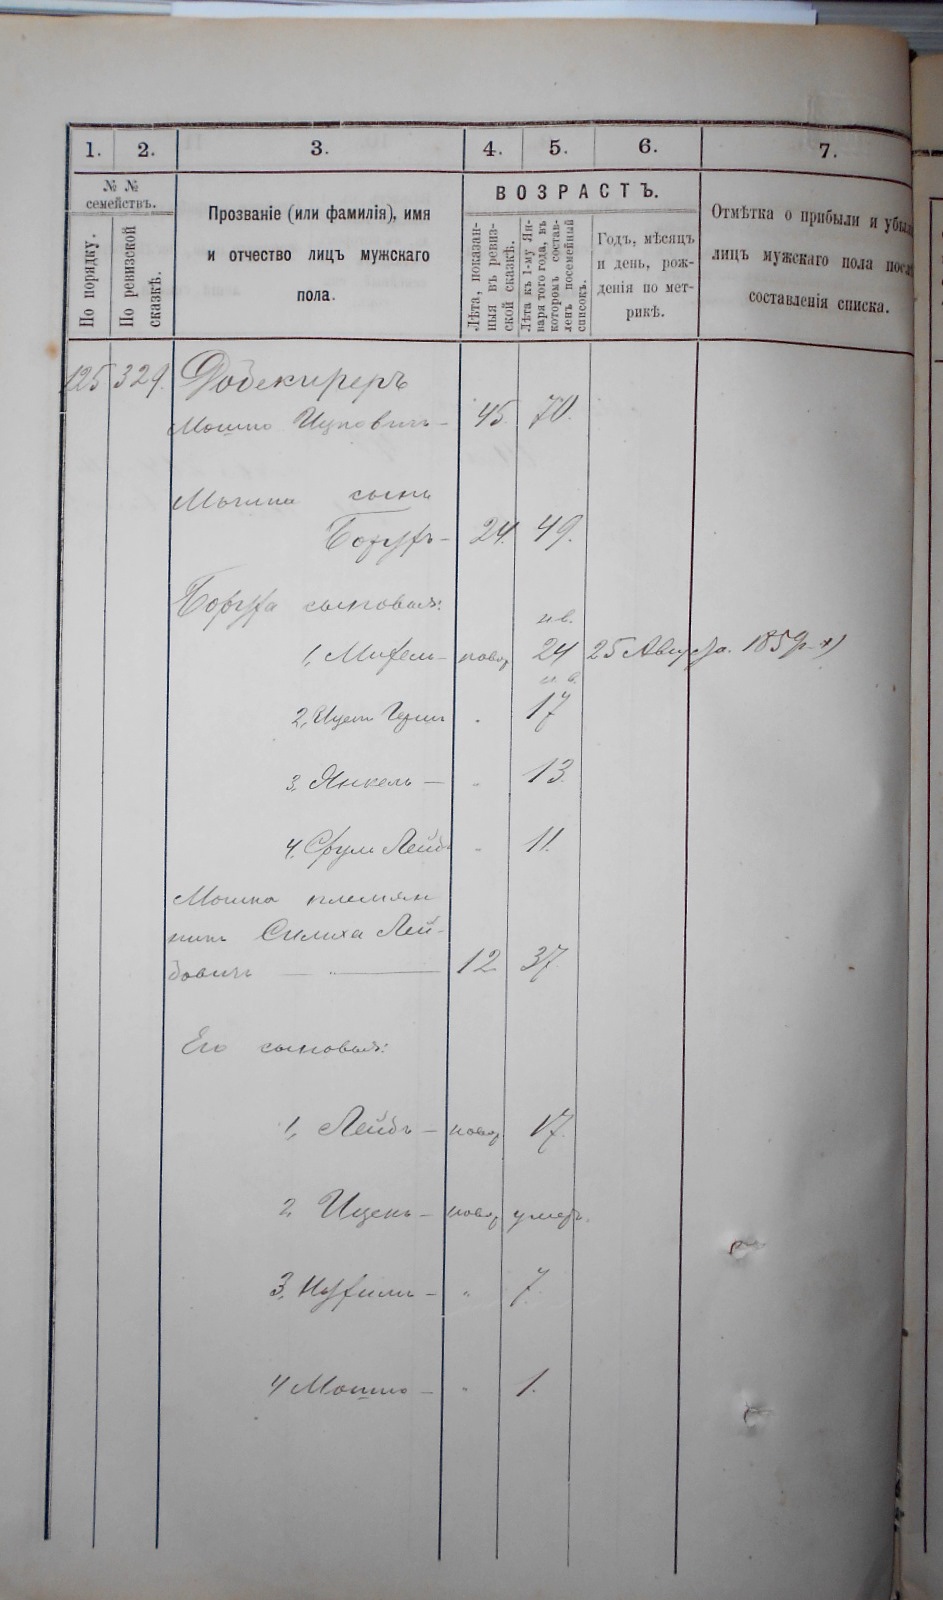 1. 2. 3. 4. 5. 6. 7.
№ №
семействъ.
По порядку.
По ревизской
сказкѣ.
Прозваніе (или фамилія), имя
и отчество лицъ мужскаго
пола.
ВОЗРАСТЪ.
Лѣта, показан-
ныя въ ревиз-
ской сказкѣ.
Лѣта къ 1-му Ян-
варя того года, въ
которомъ состав-
ленъ посемейный
списокъ.
Годъ, мѣсяцъ
и день, рож-
денія по мет-
рикѣ.
Отмѣтка о прибыли и убыли
лицъ мужскаго пола посл
составленія списка.
125 329. Добекиреръ
Мошко Ицковичъ - 45. 70.
Мошка сынъ
Борухъ - 24. 49.
Боруха сыновья:
1, - новор 24 25 Августа. 1859
2, Ицекъ Герш " 17
3, Янкель - " 13.
4. Срулъ Лейб " 11.
Мошка племян
никъ Лей-
бовичъ - 12 37
Его сыновья:
1, Лейбъ - новор 17.
2, Ицекъ - новор умер.
3, - " 7.
4 Мошко - " 1.